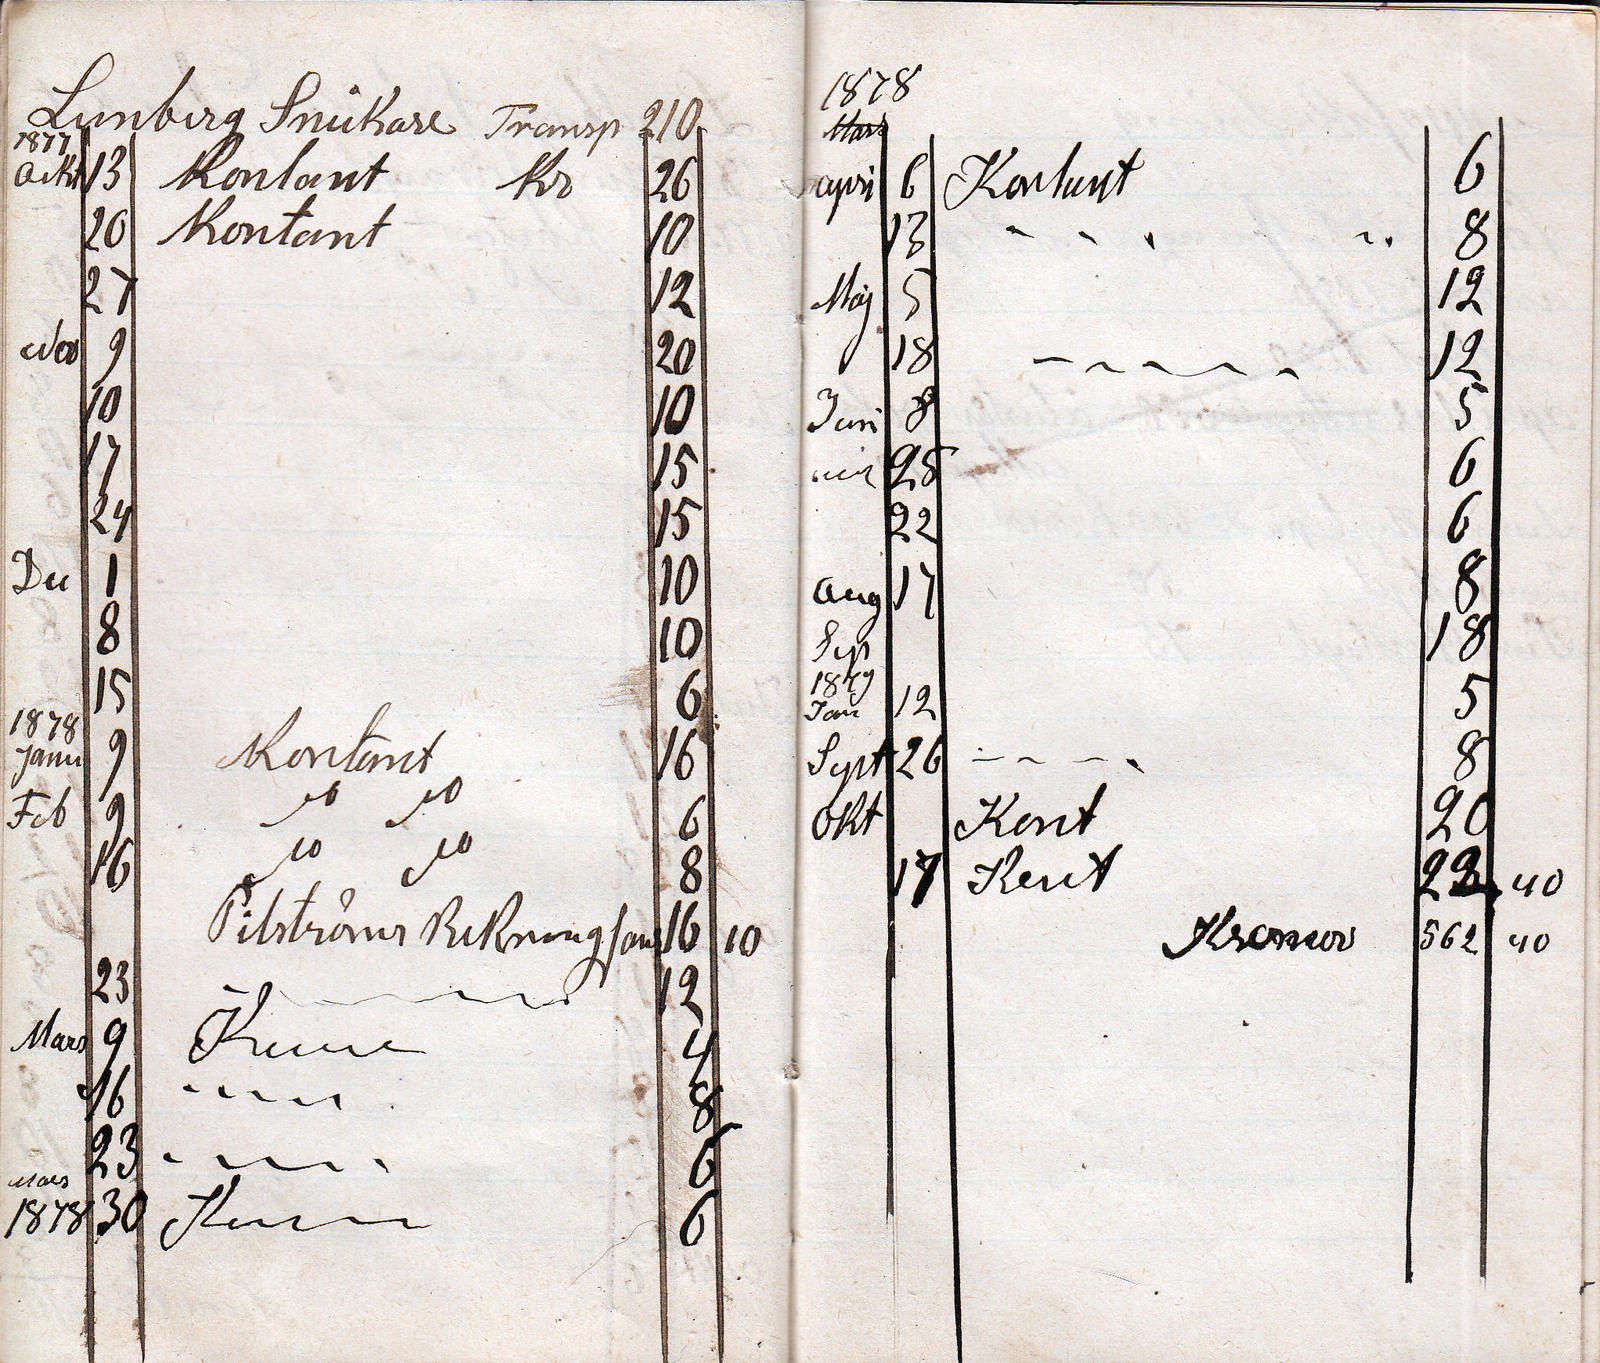 Lunberg Snikare Transp 210
1877
Ockt 13 Kontant Kr 26
20 Kontant 10
27 12
Nov 9 20
10 10
17 15
24 15
De 1 10
8 10
15 6
1878
Janu 9 Kontant 16
Feb 9 6
16 8
Pilströms Rekning 16 10
23 12
Mars 9 4
16 8
23 6
Mars
1878 30 6
1878
Mars
apri 6 Kontant 6
13 8
Maj 5 12
18 12
Juni 8 5
25 6
22 6
Aug 17 8
Sep 18
1879
Jan 12 5
Sept 26 8
Okt Kont 20
17 Kont 22 40
Kronor 562 40